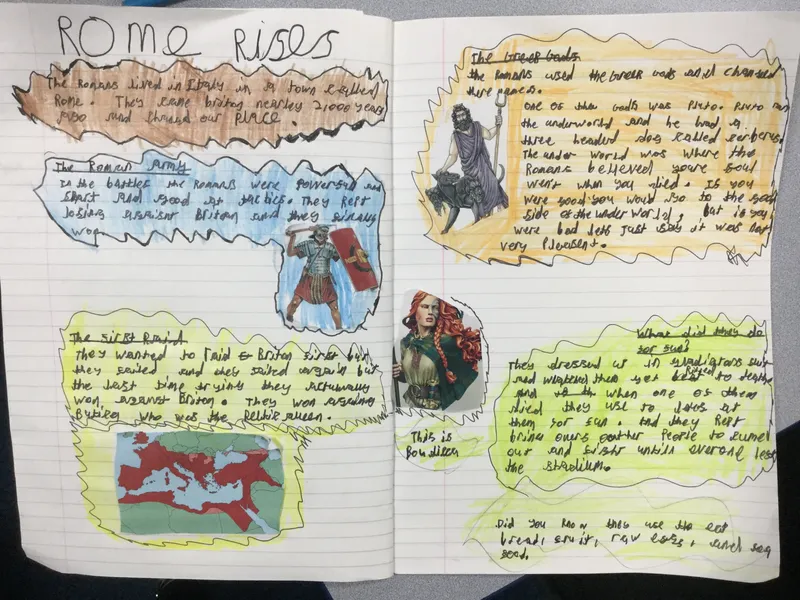 ROME RISES
The Romans lived in Italy in a town called
Rome. They came briton nearly 2,000 years
ago and changed our PLACE.
The Roman Army
In the battles the Romans were powerfull and
smart and good at tactics. They kept
losing against Briton and they finally
won
The First Raid
They wanted to raid Briton first but
they failed, and they failed again but
the last time trying they actually
won, against Briton. They won against
who was the queen.
The Greek Gods
the Romans used the Greek Gods and changed
there names.
one of the gods was Pluto. Pluto ran
the underworld and he had a
three headed dog called cerberus
The under world was where the
Romans believed youre soul
went when you died. If you
were good you would go to the good
side of the under world, but if you
were bad lets just say it was not
very pleasent.
This is
Boudicca
What did they do
for fun?
They dressed up in gladiators suit
and watched them get to death
and when one of them
died they use to at
them for fun. And they kept
people to
and fight untill
the stadium.
Did you know they use to eat
bread, fruit, raw eggs, and sea
food.